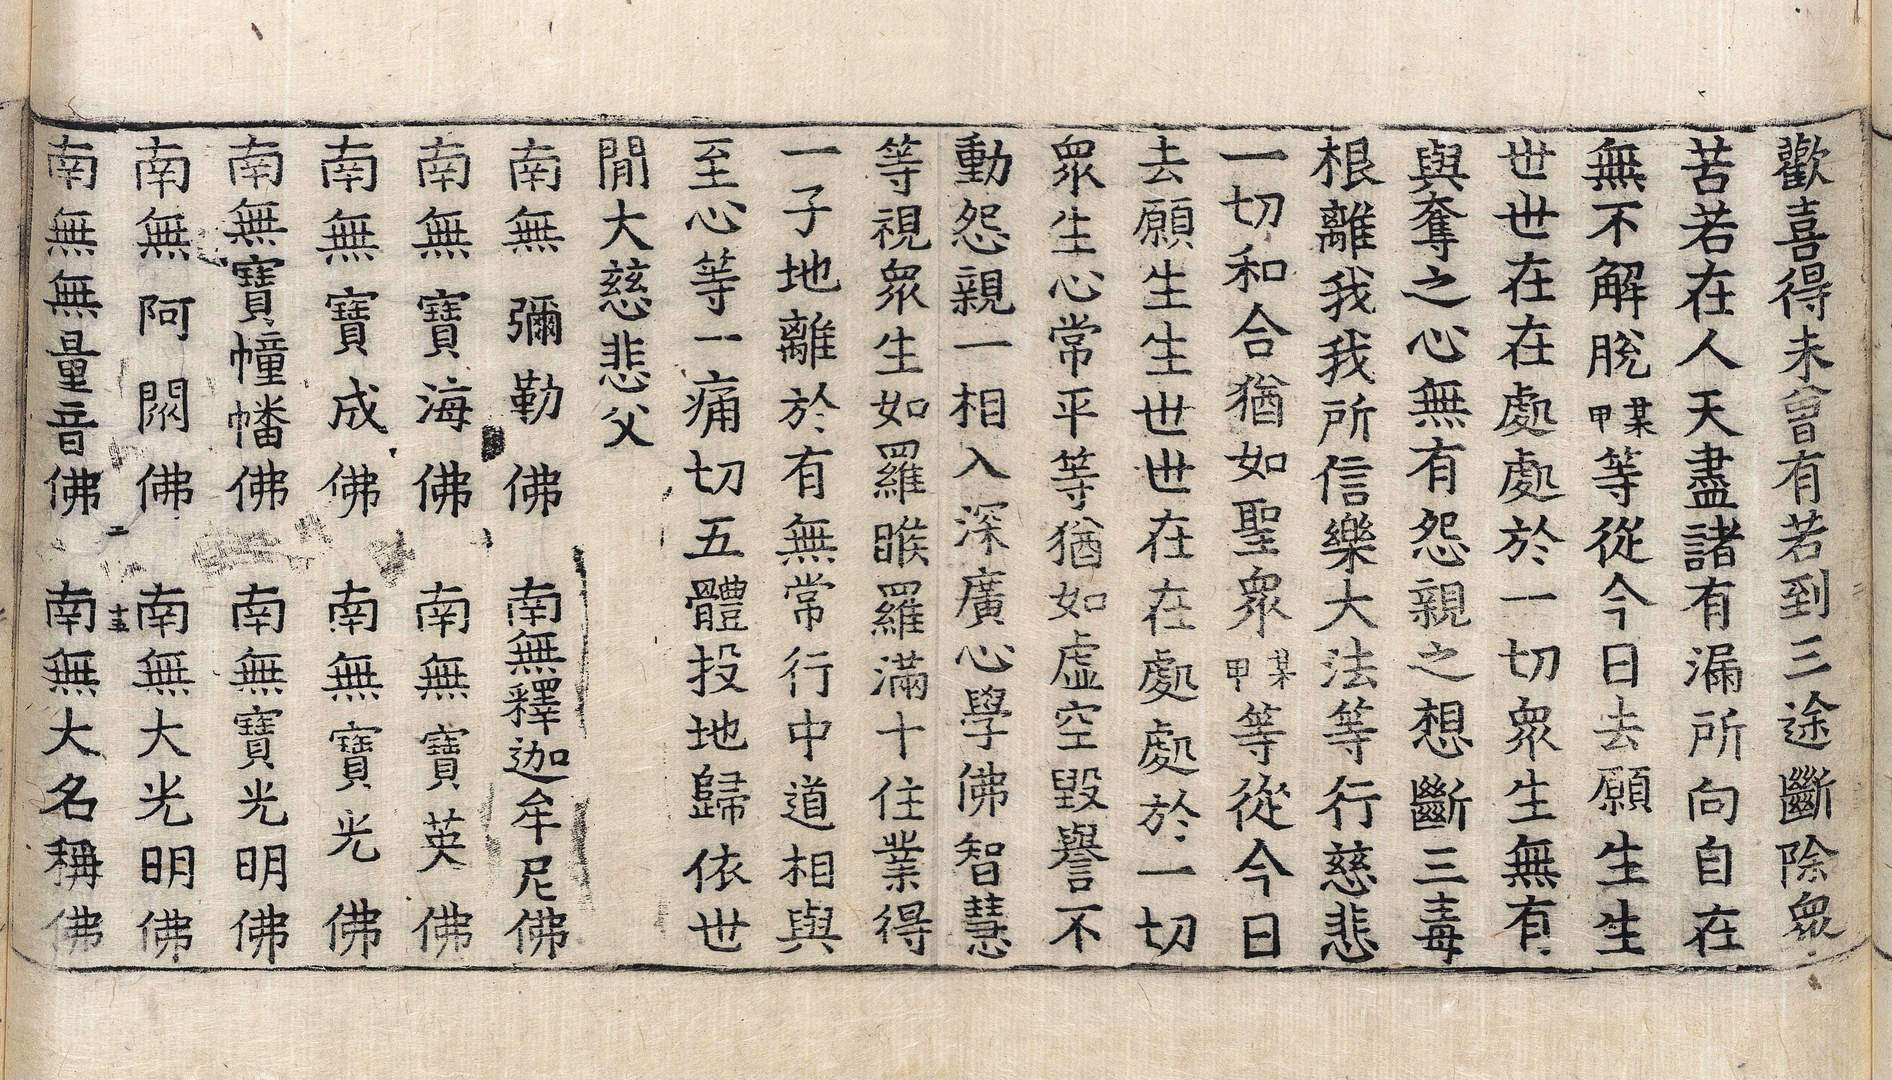 歡喜得未曾有若到三途斷除衆
苦若在人天盡諸有漏所向自在
無不解脫某甲等從今日去願生生
世世在在處處於一切衆生無有
與奪之心無有怨親之想斷三毒
根離我我所信樂大法等行慈悲
一切和合猶如聖衆某甲等從今日
去願生生世世在在處處於一切
衆生心常平等猶如虛空毀譽不
動怨親一相入深廣心學佛智慧
等視衆生如羅睺羅滿十住業得
一子地離於有無常行中道相與
至心等一痛切五體投地歸依世
閒大慈悲父
南無彌勒佛 南無釋迦牟尼佛
南無寶海佛 南無寶英佛
南無寶成佛 南無寶光佛
南無寶幢幡佛 南無寶光明佛
南無阿閦佛 南無大光明佛
二 十五
南無無量音佛 南無大名稱佛